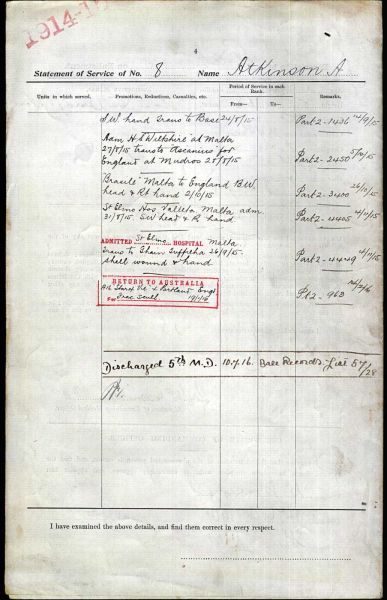 1914-15
4
Statement of Service of No. 8 Name Atkinson A
Units in which served. Promotions, Reductions, Casualties, etc. Period of Service in each Rank. Remarks.
From— To—
S.W. hand Trans to Base 24/8/15 Part 2-1436 14/9/15
Adm H.S Wiltshire at Malta
27/8/15 transfd Ascanius for
England at Mudros 28/8/15 Part 2-2450 5/10/15
"Brasile" Malta to England B.W.
head & Rt hand 2/10/15 Part 2-3400 26/10/15
St Elmo Hos Valletta Malta adm
31/8/15. SW head & R hand Part 2-4405
ADMITTED St Elmo HOSPITAL Malta
Trans to Ghain Tuffieha 26/9/15
shell wound & hand Part 2-4449
RETURN TO AUSTRALIA
Portland Engl
For Frac Scull 19/1/16 Pt 2-963
Discharged 5th M.D. 10.7.16. Base Records List 57/28
I have examined the above details, and find them correct in every respect.